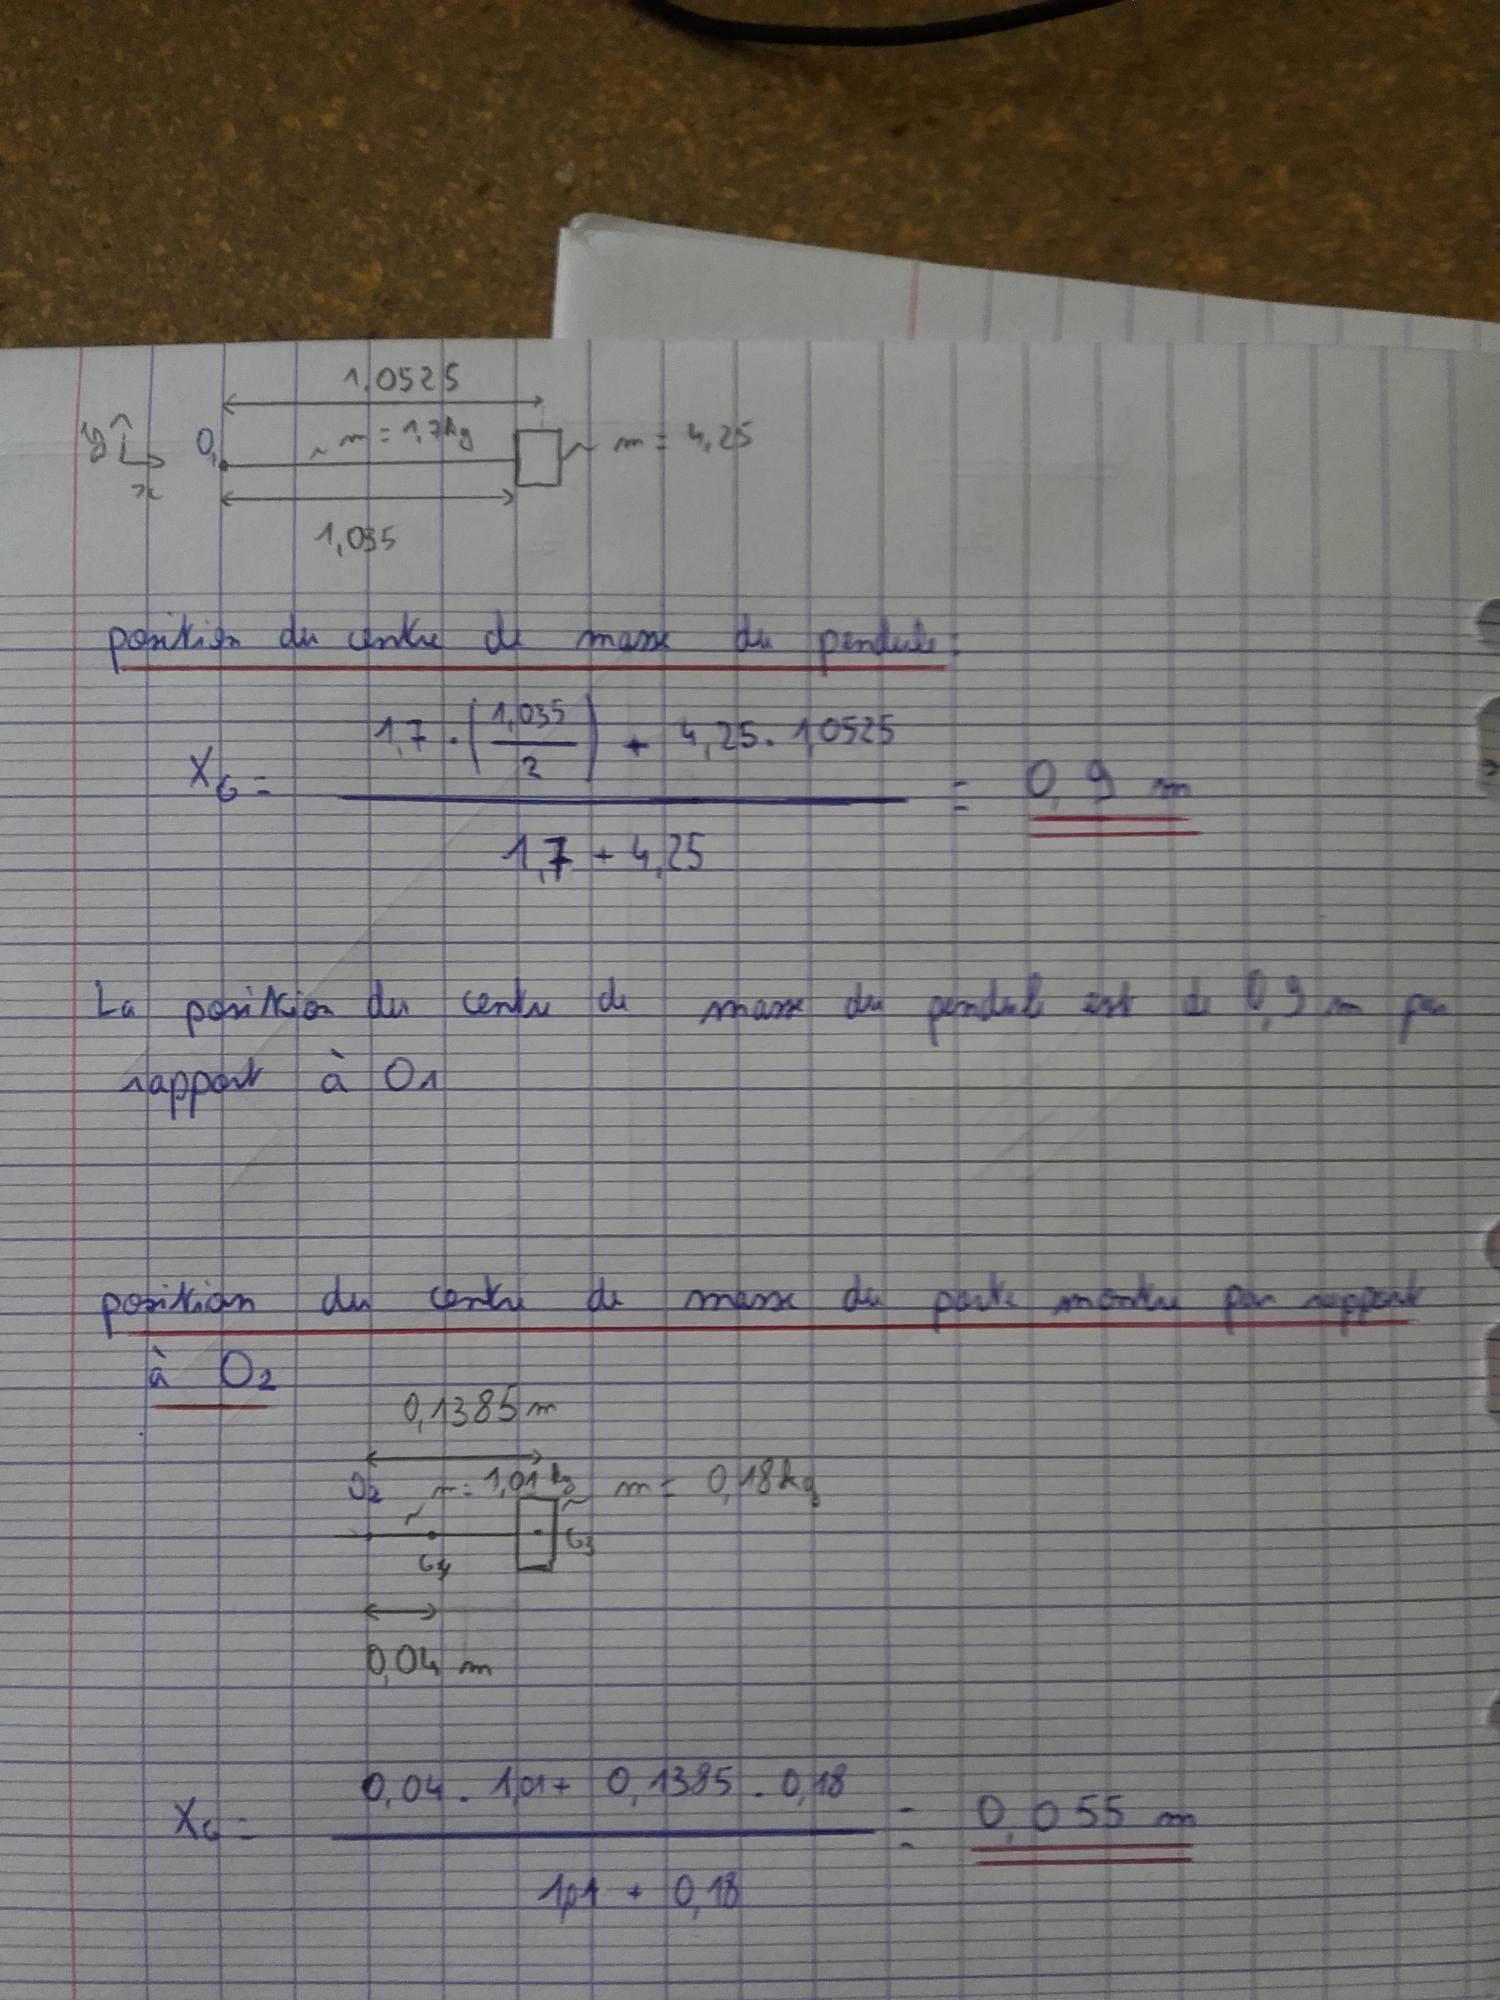 1,0525
y
O1
m = 1,7kg
m = 4,25
x
1,035
position du centre de masse du pendule :
1,7 . (1,035 / 2) + 4,25 . 1,0525
XG = = 0,9 m
1,7 + 4,25
La position du centre de masse du pendule est de 0,9 m par
rapport à O1
position du centre de masse du porte montre par rapport
à O2
0,1385 m
O2 m = 1,01 kg m = 0,18 kg
G3
G4
0,04 m
0,04 . 1,01 + 0,1385 . 0,18
XG = = 0,055 m
1,01 + 0,18